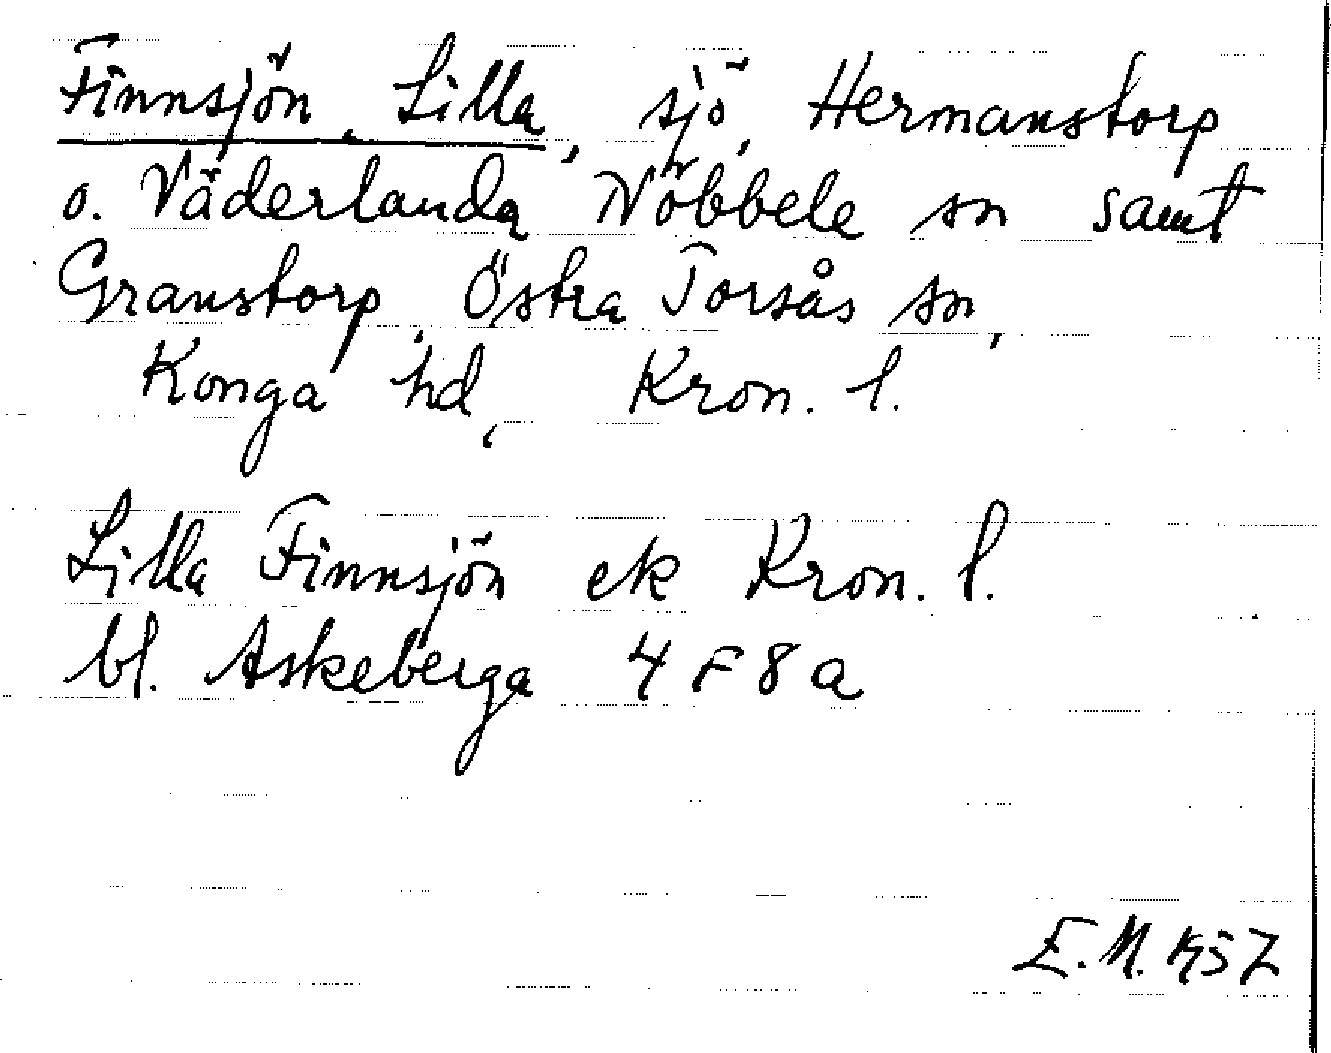 Finnsjön, Lilla, sjö, Hermanstorp
o. Väderlanda Nöbbele sn samt
Granstorp, Östra Torsås sn,
Konga hd, Kron. l.
Lilla Finnsjön ek Kron. l.
bl. Askeberga 4 F 8 a
E.M.